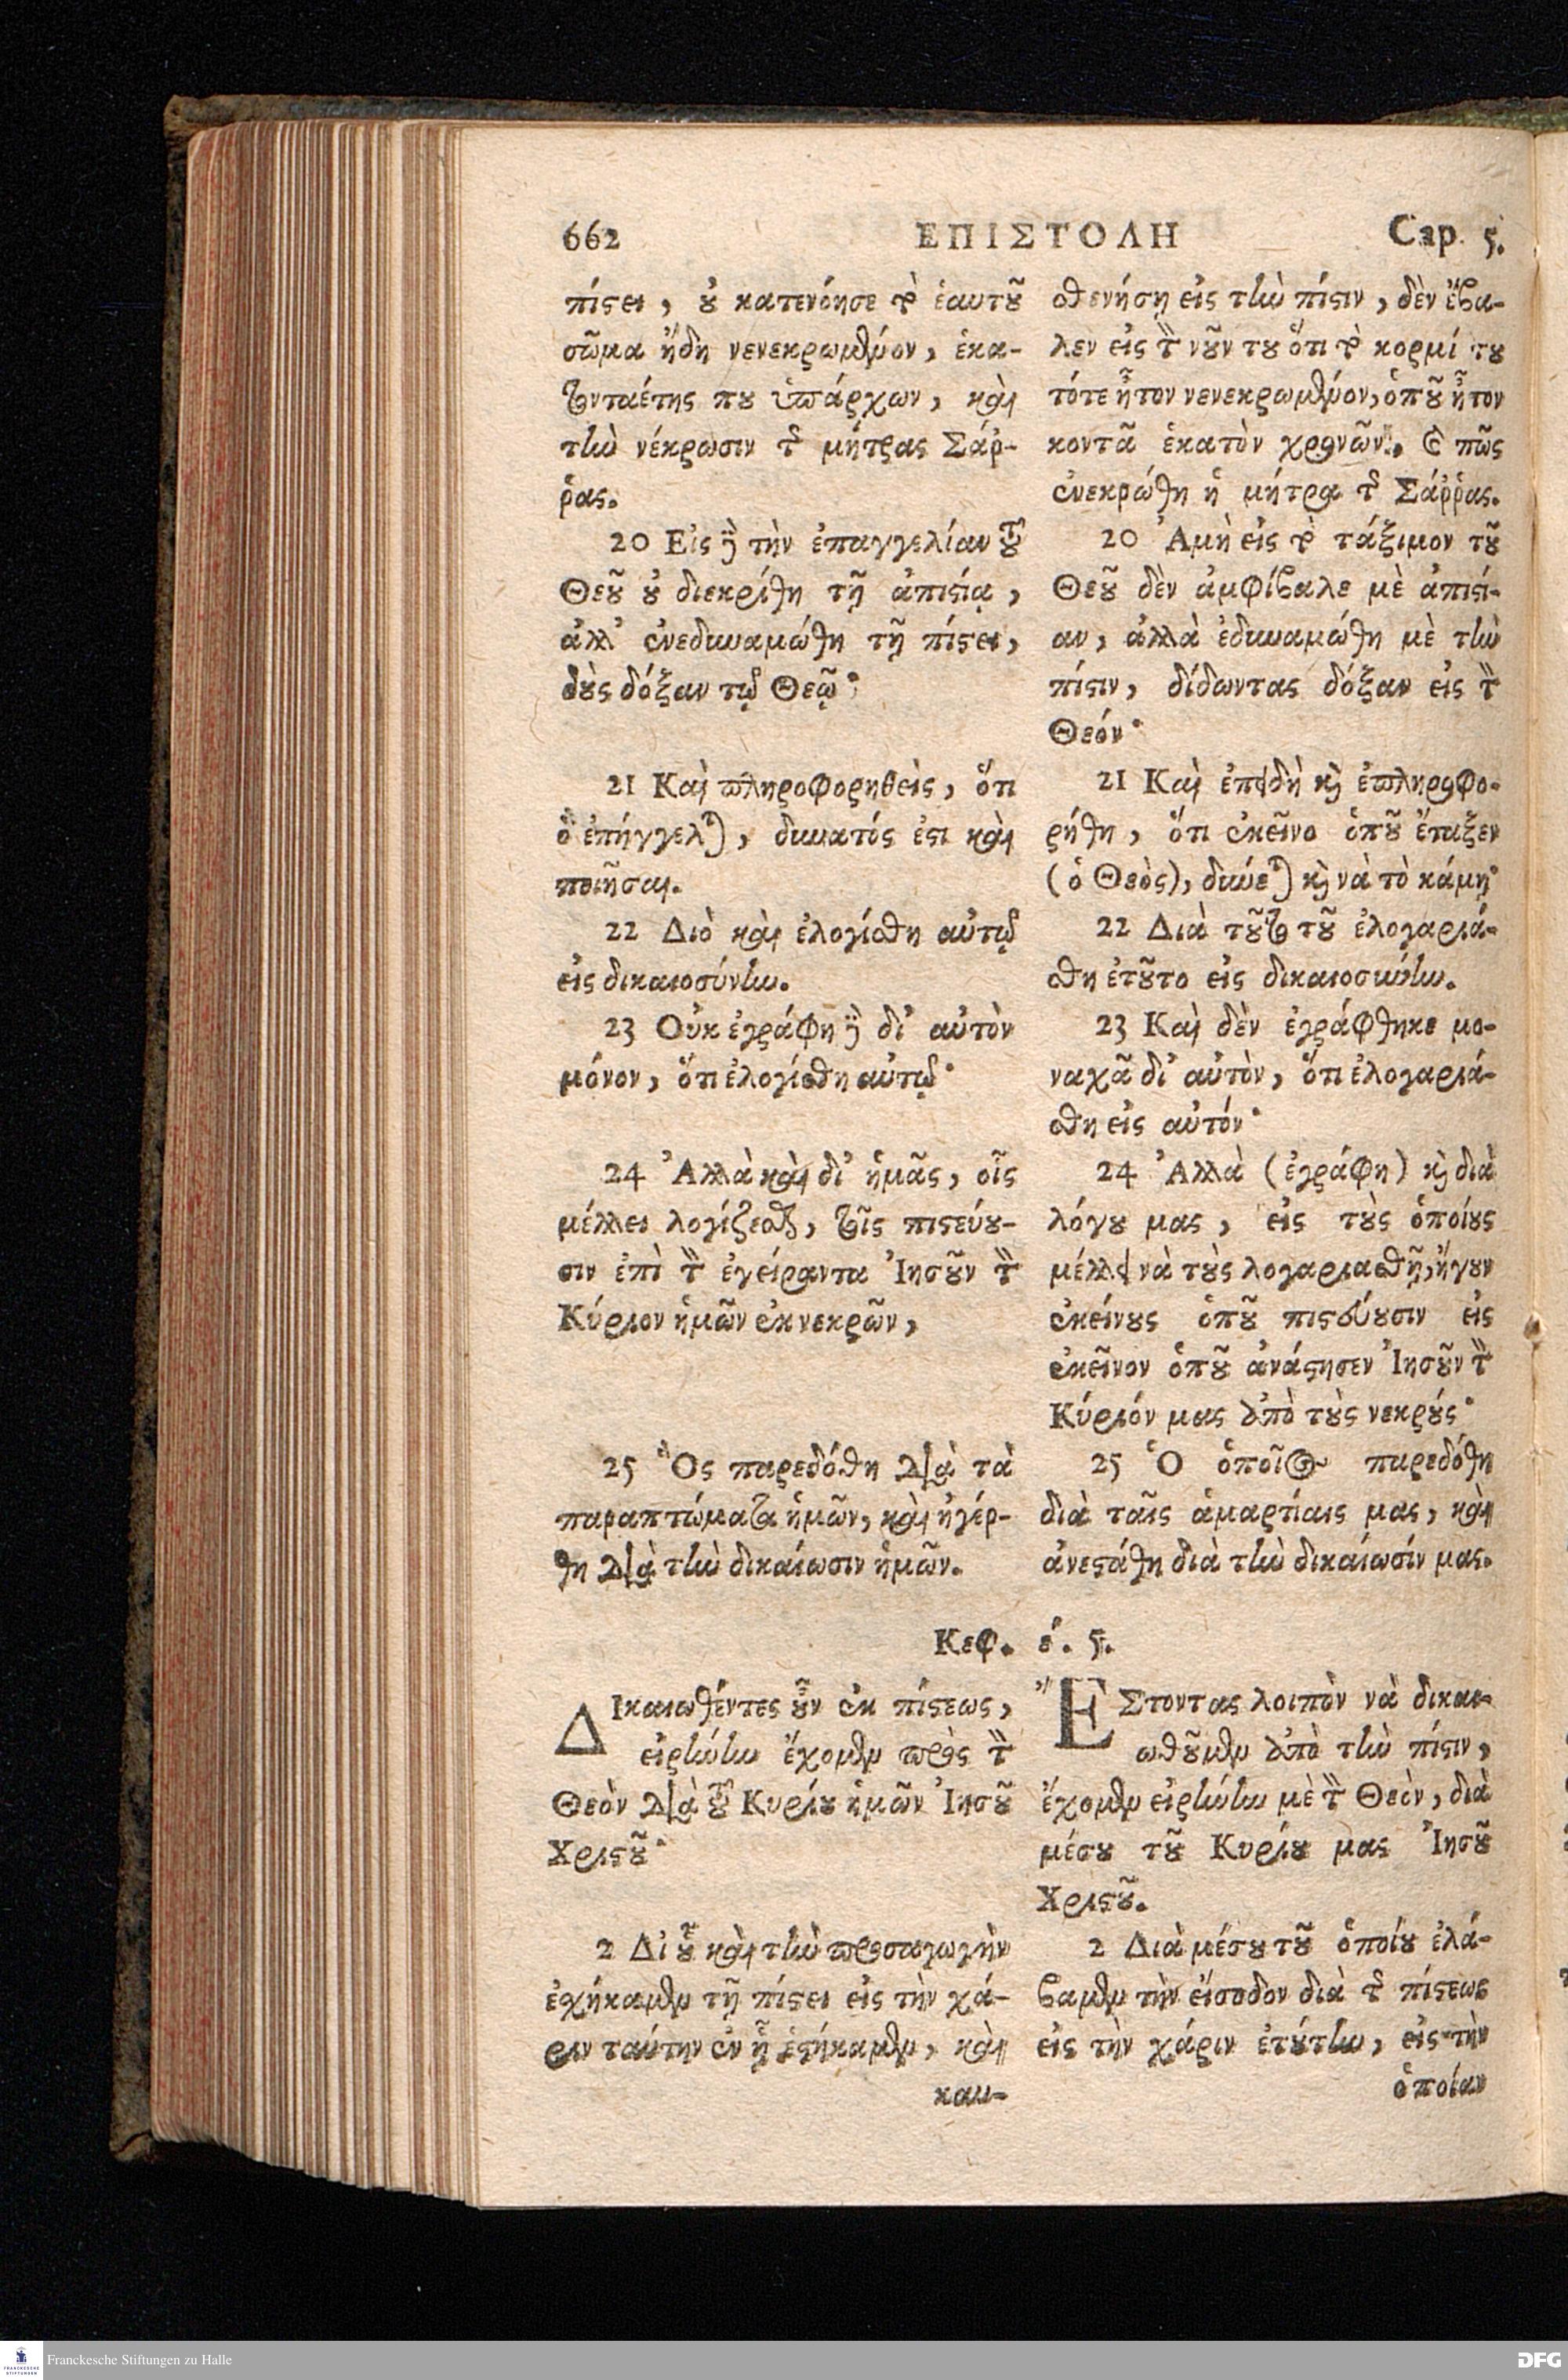 662 ΕΠΙΣΤΟΛΗ Cap. 5.
πίϛει, ȣ̓ κατενόησε τὸ ἑαυτȣ͂
σῶμα ἤδη νενεκρωμένον, ἑκα-
τονταέτης πȣ ὑπάρχων, καὶ
τὴν νέκρωσιν τῆς μήτρας Σάῤ-
ῥας.
20 Εἰς δὲ τὴν ἐπαγγελίαν τȣ͂
Θεȣ͂ ȣ̓ διεκρίθη τῇ ἀπιϛίᾳ,
ἀλλ' ἐνεδυναμώθη τῇ πίϛει,
δȣ̀ς δόξαν τῷ Θεῷ·
21 Καὶ πληροφορηθεὶς, ὅτι
ὃ ἐπήγγελται, δυνατός ἐϛι καὶ
ποιῆσαι.
22 Διὸ καὶ ἐλογίσθη αὐτῷ
εἰς δικαιοσύνην.
23 Οὐκ ἐγράφη δὲ δι' αὐτὸν
μόνον, ὅτι ἐλογίσθη αὐτῷ·
24 Ἀλλὰ καὶ δι' ἡμᾶς, οἷς
μέλλει λογίζεσθαι, τοῖς πιϛεύȣ-
σιν ἐπὶ τὸν ἐγείραντα Ἰησȣ͂ν τὸν
Κύριον ἡμῶν ἐκ νεκρῶν,
25 Ὃς παρεδόθη διὰ τὰ
παραπτώματα ἡμῶν, καὶ ἠγέρ-
θη διὰ τὴν δικαίωσιν ἡμῶν.
σθενήσῃ εἰς τὴν πίϛιν, δὲν ἔβα-
λεν εἰς τὸν νȣ͂ν τȣ ὅτι τὸ κορμί τȣ
τότε ἦτον νενεκρωμένον, ὁπȣ͂ ἦτον
κοντᾶ ἑκατὸν χρονῶν, καὶ πῶς
ἐνεκρώθη ἡ μήτρα τῆς Σάῤῥας.
20 Ἀμὴ εἰς τὸ τάξιμον τȣ͂
Θεȣ͂ δὲν ἀμφίβαλε μὲ ἀπιϛί-
αν, ἀλλὰ ἐδυναμώθη μὲ τὴν
πίϛιν, δίδωντας δόξαν εἰς τὸν
Θεόν·
21 Καὶ ἐπειδὴ καὶ ἐπληροφο-
ρήθη, ὅτι ἐκεῖνο ὁπȣ͂ ἔταξεν
(ὁ Θεὸς), δύνεται καὶ νὰ τὸ κάμῃ·
22 Διὰ τȣ͂το τȣ͂ ἐλογαριά-
σθη ἐτȣ͂το εἰς δικαιοσύνην.
23 Καὶ δὲν ἐγράφθηκε μο-
ναχᾶ δι' αὐτὸν, ὅτι ἐλογαριά-
σθη εἰς αὐτόν·
24 Ἀλλὰ (ἐγράφη) καὶ διὰ
λόγȣ μας, εἰς τȣ̀ς ὁποίȣς
μέλλει νὰ τȣ̀ς λογαριασθῇ, ἤγȣν
ἐκείνȣς ὁπȣ͂ πιϛεύȣσιν εἰς
ἐκεῖνον ὁπȣ͂ ἀνάϛησεν Ἰησȣ͂ν τὸν
Κύριόν μας ἀπὸ τȣ̀ς νεκρȣ́ς·
25 Ὁ ὁποῖος παρεδόθη
διὰ ταῖς ἁμαρτίαις μας, καὶ
ἀνεϛάθη διὰ τὴν δικαίωσίν μας.
Κεφ. έ. 5.
ΔΙκαιωθέντες ȣ̓͂ν ἐκ πίϛεως,
εἰρήνην ἔχομεν πρὸς τὸν
Θεὸν διὰ τȣ͂ Κυρίȣ ἡμῶν Ἰησȣ͂
Χριϛȣ͂·
2 Δι' ȣ̔͂ καὶ τὴν προσαγωγὴν
ἐσχήκαμεν τῇ πίϛει εἰς τὴν χά-
ριν ταύτην ἐν ᾗ ἑϛήκαμεν, καὶ
καυ-
ἜΣτοντας λοιπὸν νὰ δικαι-
ωθȣ͂μεν ἀπὸ τὴν πίϛιν,
ἔχομεν εἰρήνην μὲ τὸν Θεὸν, διὰ
μέσȣ τȣ͂ Κυρίȣ μας Ἰησȣ͂
Χριϛȣ͂.
2 Διὰ μέσȣ τȣ͂ ὁποίȣ ἐλά-
βαμεν τὴν εἴσοδον διὰ τῆς πίϛεως
εἰς τὴν χάριν ἐτȣ́την, εἰς τὴν
ὁποίαν
Franckesche Stiftungen zu Halle
DFG